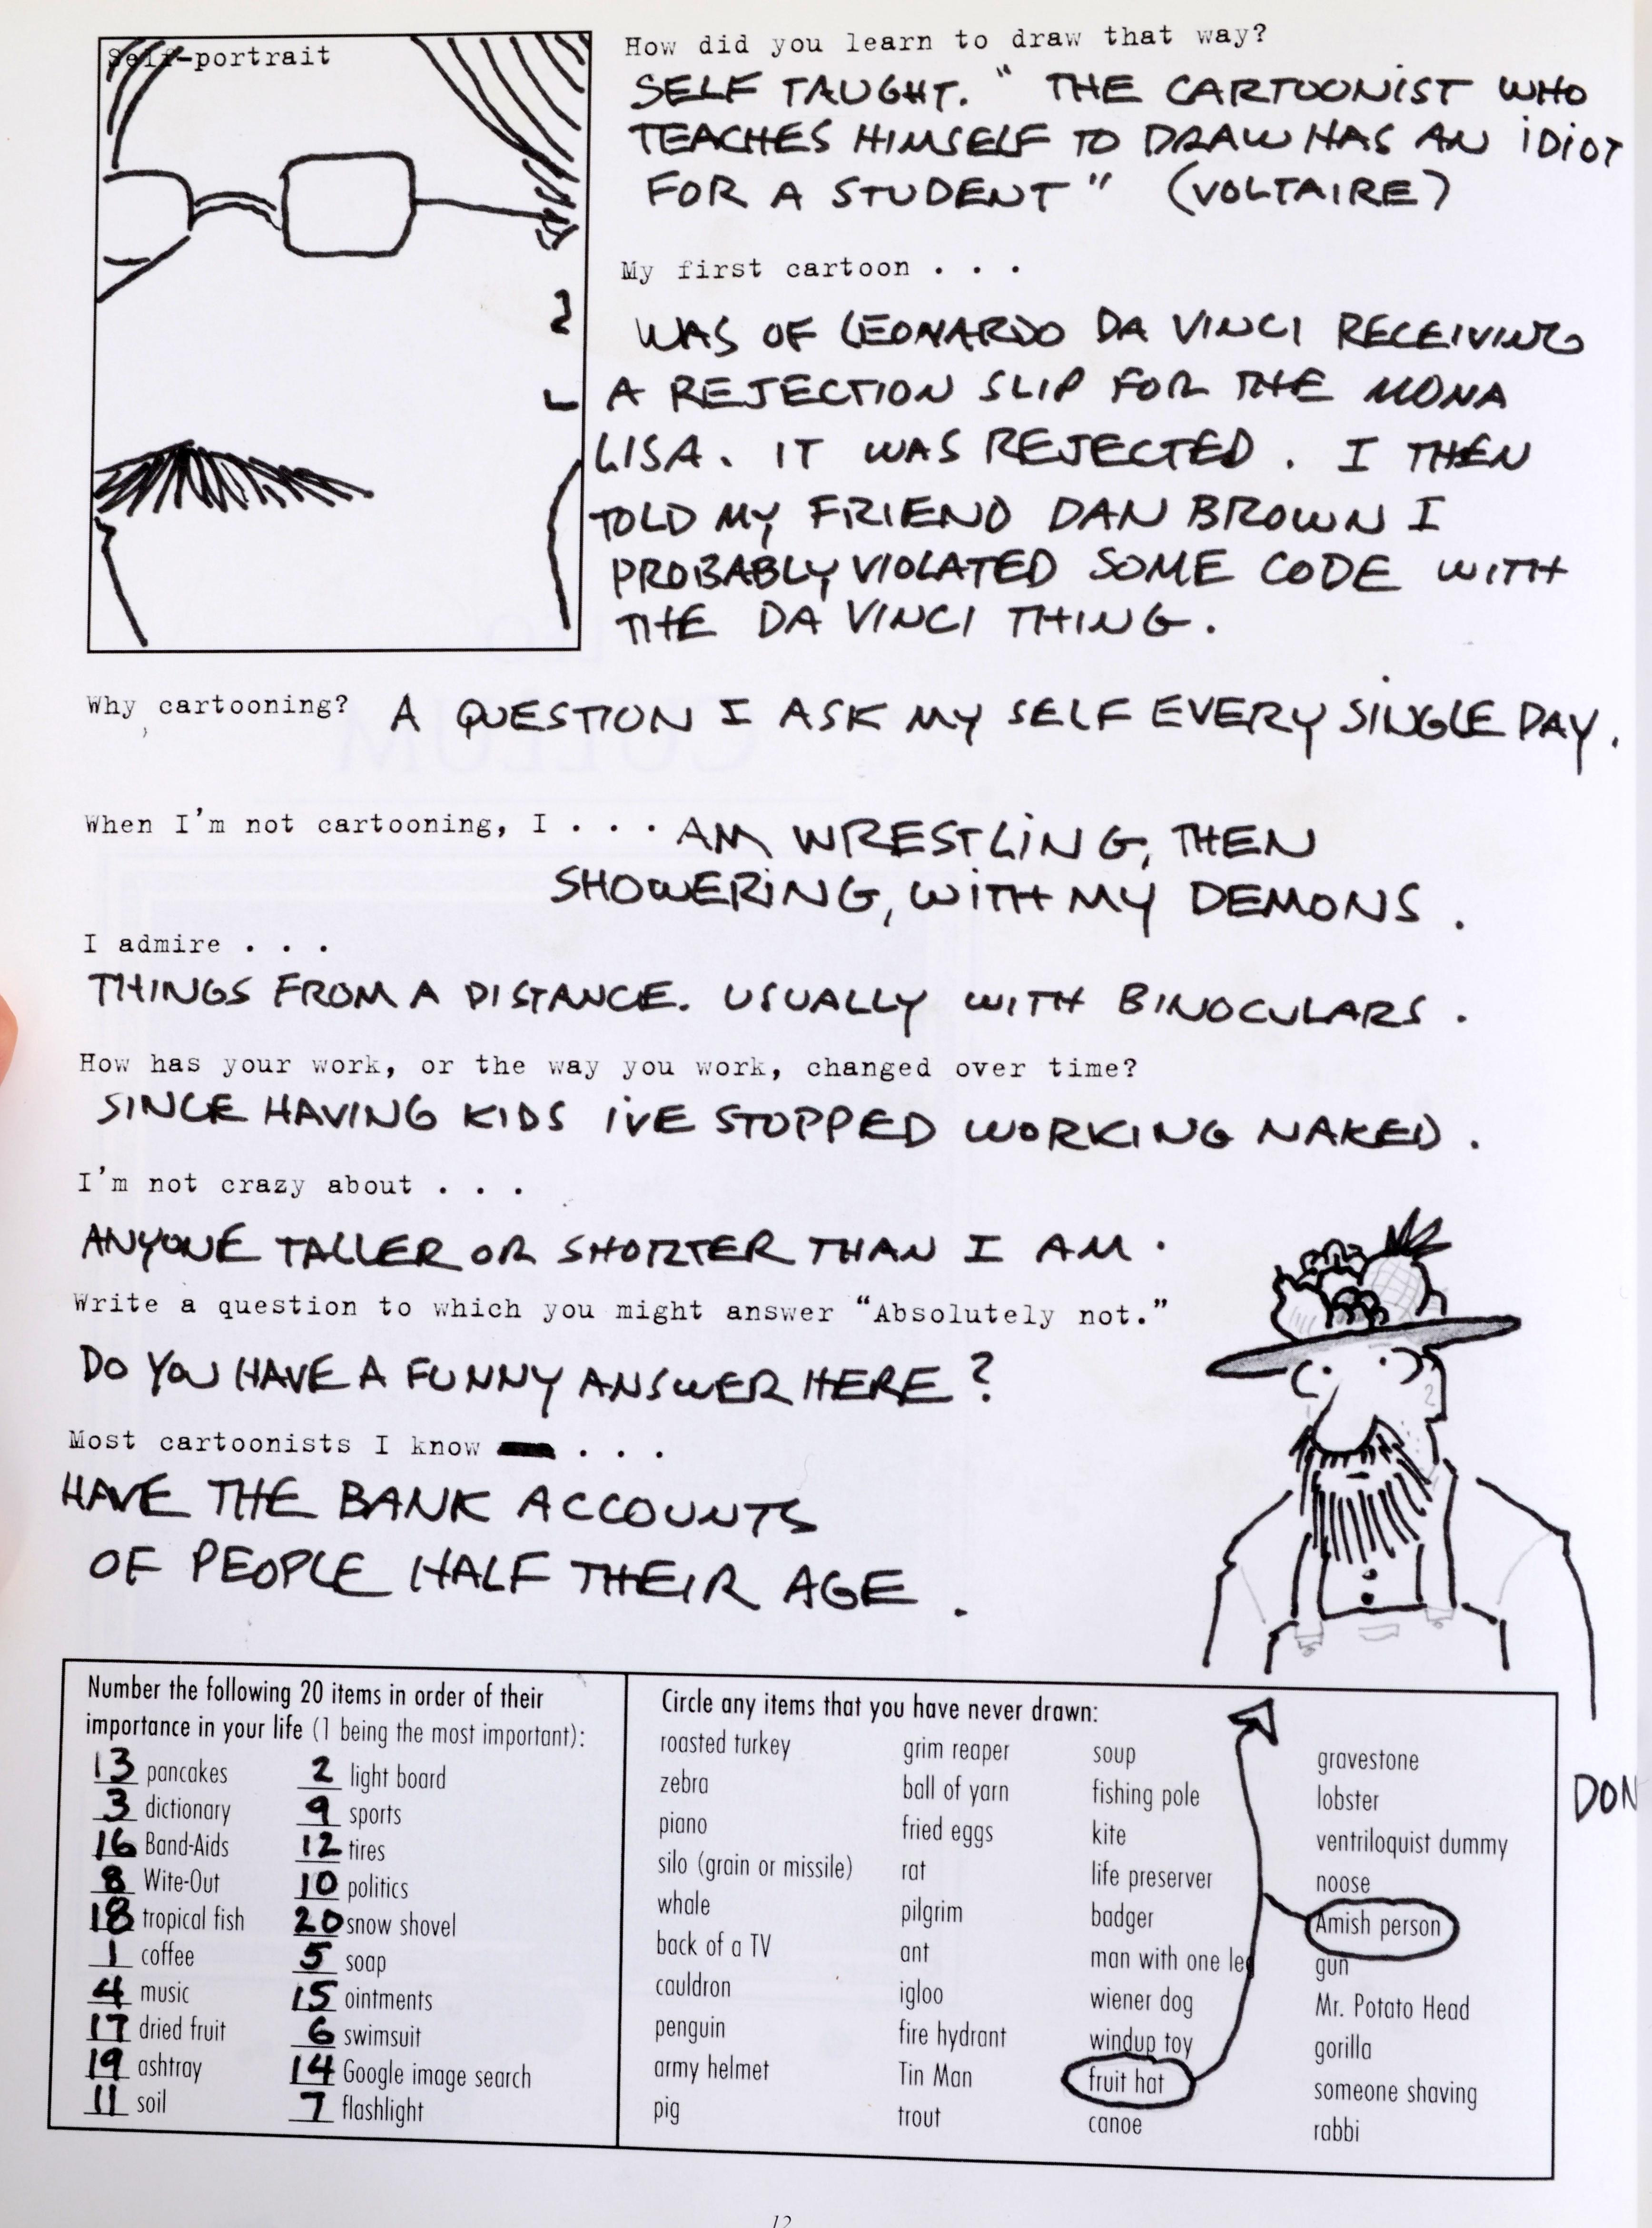 Self-portrait
How did you learn to draw that way?
SELF TAUGHT. "THE CARTOONIST WHO
TEACHES HIMSELF TO DRAW HAS AN IDIOT
FOR A STUDENT" (VOLTAIRE)
My first cartoon . . .
WAS OF LEONARDO DA VINCI RECEIVING
A REJECTION SLIP FOR THE MONA
LISA. IT WAS REJECTED. I THEN
TOLD MY FRIEND DAN BROWN I
PROBABLY VIOLATED SOME CODE WITH
THE DA VINCI THING.
Why cartooning? A QUESTION I ASK MY SELF EVERY SINGLE DAY.
When I'm not cartooning, I . . . AM WRESTLING, THEN
SHOWERING, WITH MY DEMONS.
I admire . . .
THINGS FROM A DISTANCE. USUALLY WITH BINOCULARS.
How has your work, or the way you work, changed over time?
SINCE HAVING KIDS I'VE STOPPED WORKING NAKED.
I'm not crazy about . . .
ANYONE TALLER OR SHORTER THAN I AM.
Write a question to which you might answer "Absolutely not."
DO YOU HAVE A FUNNY ANSWER HERE?
Most cartoonists I know . . .
HAVE THE BANK ACCOUNTS
OF PEOPLE HALF THEIR AGE.
Number the following 20 items in order of their
importance in your life (1 being the most important):
13 pancakes
3 dictionary
16 Band-Aids
8 Wite-Out
18 tropical fish
1 coffee
4 music
17 dried fruit
19 ashtray
11 soil
2 light board
9 sports
12 tires
10 politics
20 snow shovel
5 soap
15 ointments
6 swimsuit
14 Google image search
7 flashlight
Circle any items that you have never drawn:
roasted turkey
zebra
piano
silo (grain or missile)
whale
back of a TV
cauldron
penguin
army helmet
pig
grim reaper
ball of yarn
fried eggs
rat
pilgrim
ant
igloo
fire hydrant
Tin Man
trout
soup
fishing pole
kite
life preserver
badger
man with one leg
wiener dog
windup toy
fruit hat
canoe
gravestone
lobster
ventriloquist dummy
noose
Amish person
gun
Mr. Potato Head
gorilla
someone shaving
rabbi
DON
12